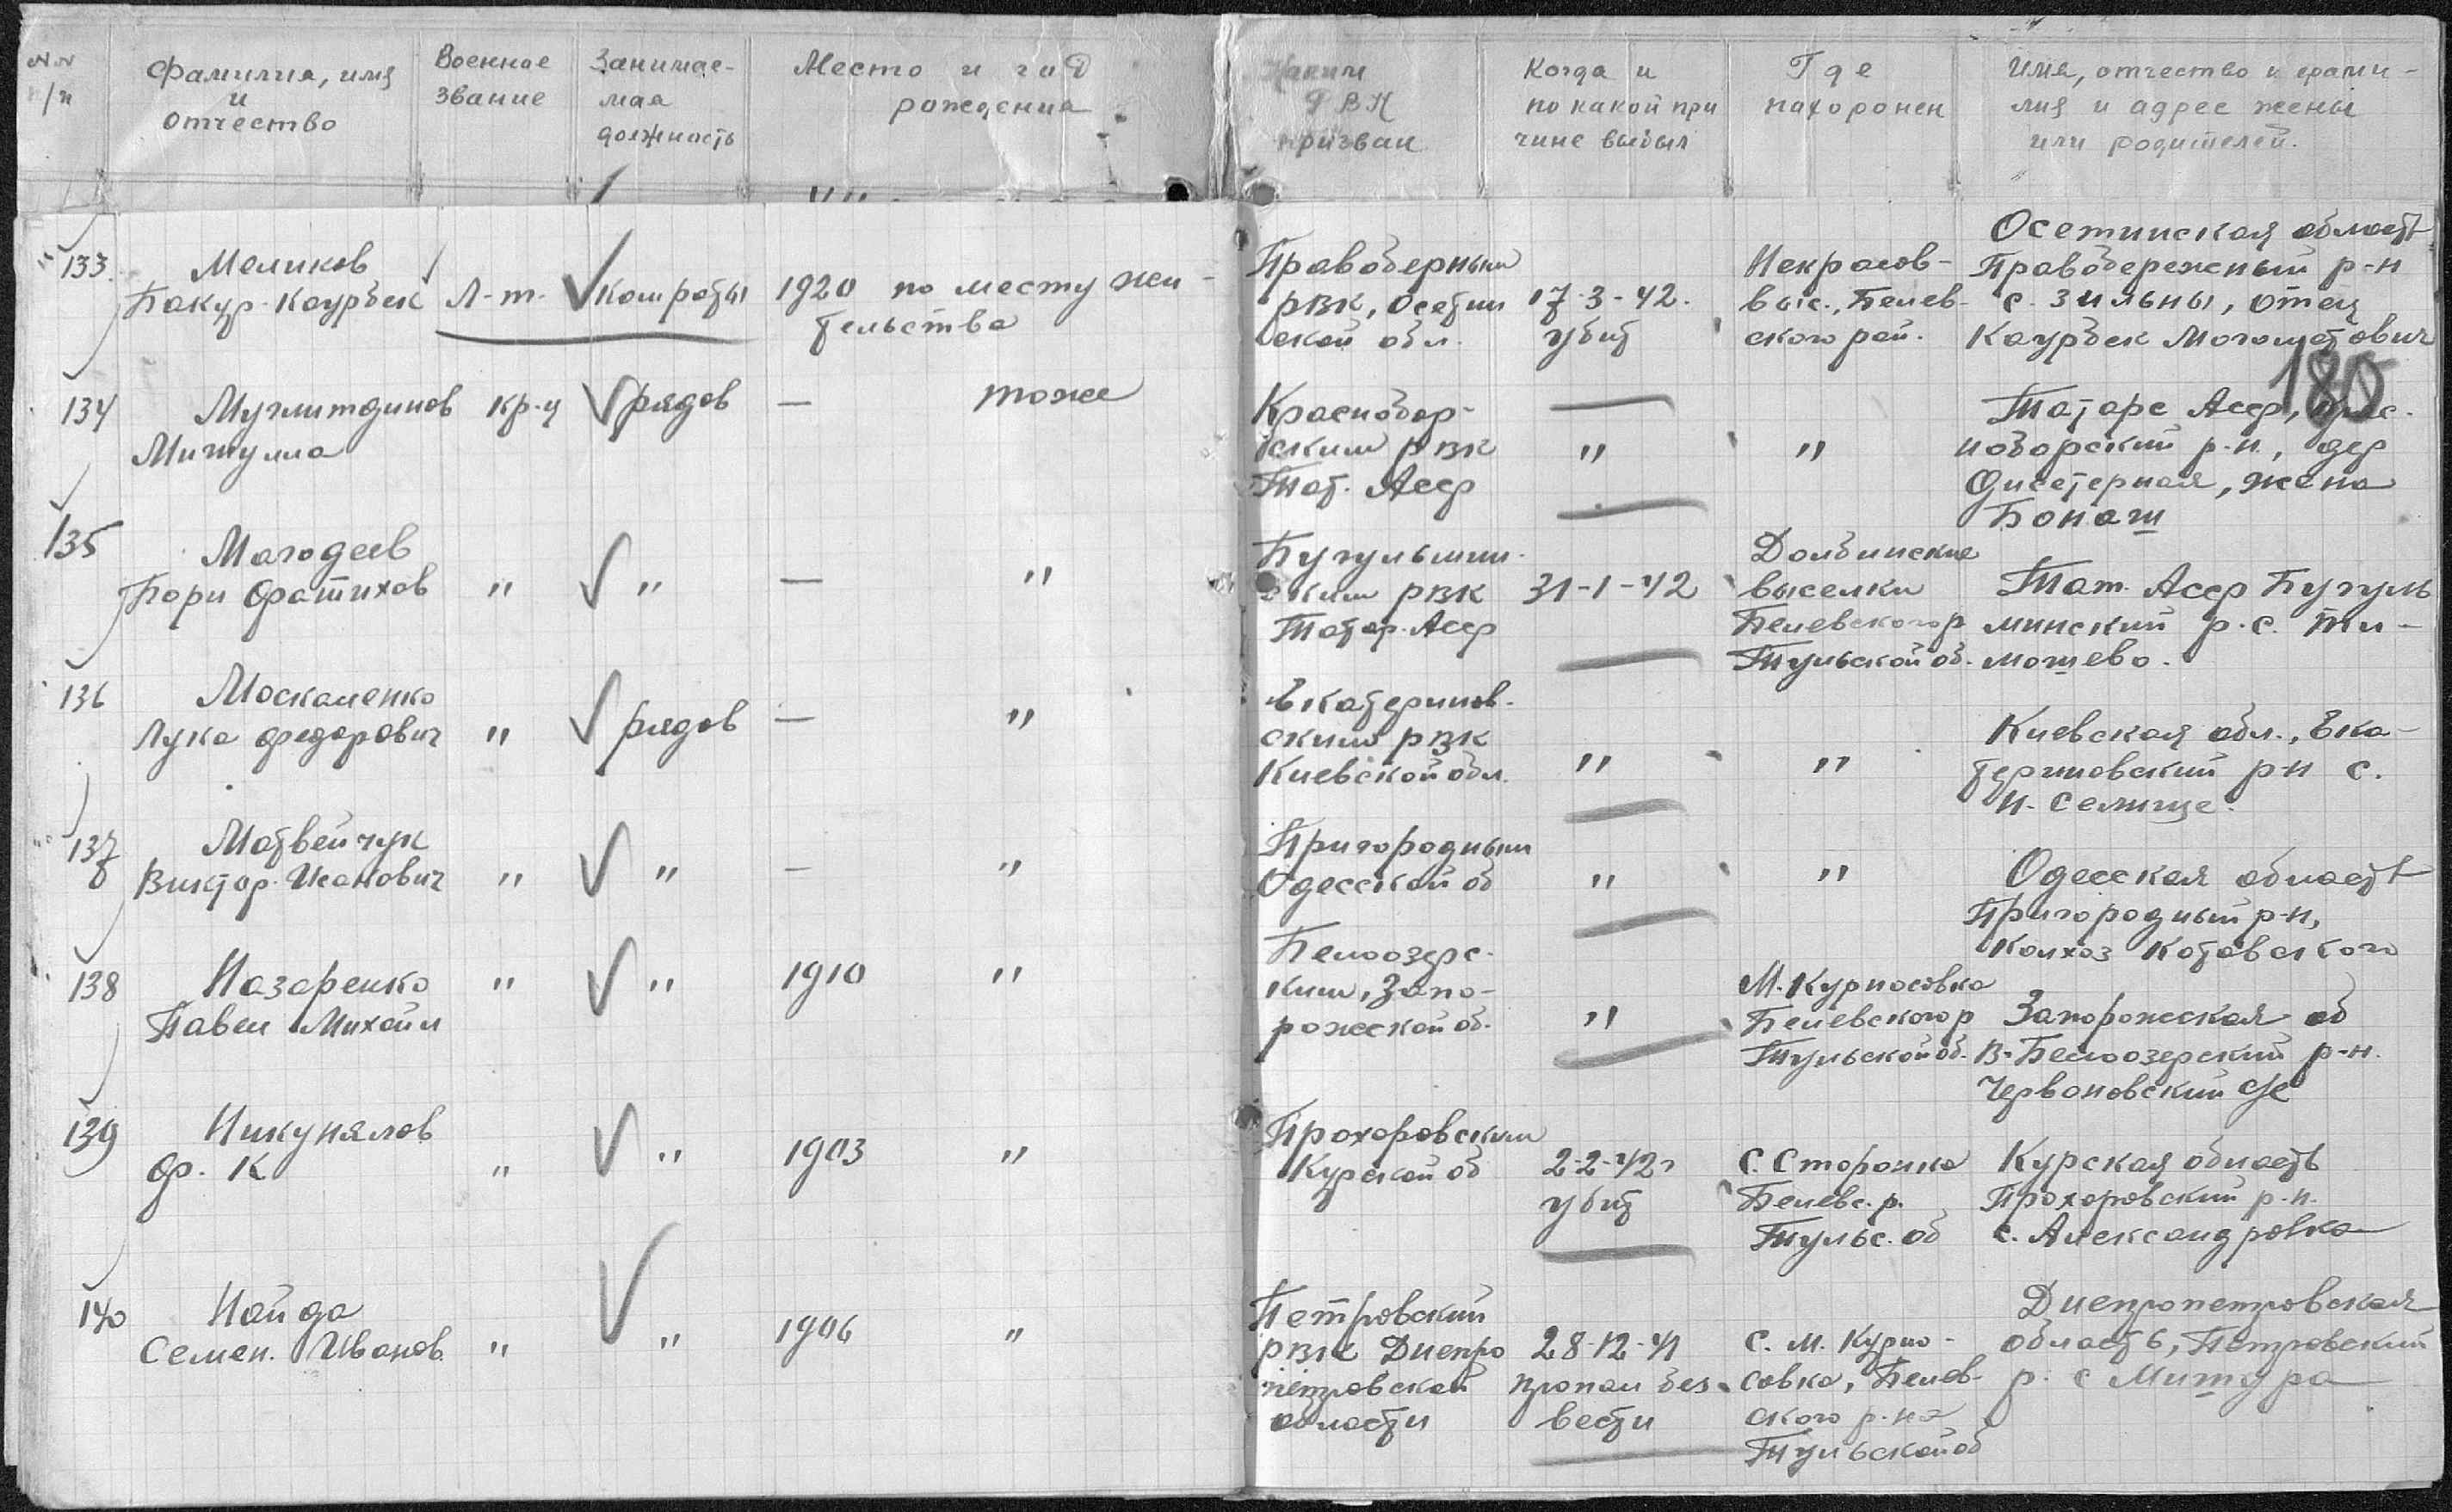 №№ п/п
Фамилия, имя и отчество
Военное звание
Занимаемая должность
Место и год рождения
Каким РВК призван
Когда и по какой причине выбыл
Где похоронен
Имя, отчество и фамилия и адрес жены или родителей.
180
133 Меликов
Бакур-Каурбек Л-т. Ком роты 1920 по месту жи-
тельства
Правобережным
РВК, Осетин
ской обл.
17-3-42.
убит
Некрасов-
выс., Белев-
ского рай.
Осетинская область
Правобережный р-н
с. Зильны, отец
Каурбек Могометович
134 Муглитдинов кр-ц рядов — тоже
Митулла
Краснобор-
ским РВК
Тат. Асср
" "
Татарс Асср, Крас-
ноборский р-н, дер
жена
Бонаш
135 Магодеев
Гори Фатихов " " — "
Бугульмин-
ским РВК
Татар. Асср
31-1-42
Долбинские
выселки
Белевского р
Тульской об.
Тат. Асср Бугуль
минский р. с. Ти-
мошево.
136 Москаленко
Лука Федорович " рядов — "
Екатеринов-
ским РВК
Киевской обл.
" "
Киевская обл., Ека-
териновский р-н с.
Н. Селище.
137 Матвейчук
Виктор Иванович " " — "
Пригородным
Одесской об
" "
Одесская область
Пригородный р-н,
Колхоз Котовского
138 Назаренко " " 1910 "
Павел Михайл
Белоозерс-
ким, Запо-
рожской об.
"
М. Курносовка
Белевского р
Тульской об.
Запорожская об
В-Белоозерский р-н.
Червоновский с/с
139 Никунялов
Ф. К " " 1903 "
Прохоровским
Курской об
2-2-42 г
убит
С. Сторонка
Белевс. р.
Тульс. об
Курская область
Прохоровский р-н.
с. Александровка
140 Найда
Семен. Иванов. " " 1906 "
Петровский
РВК Днепро
петровской
области
28-12-41
пропал без
вести
с. М. Курно-
совка, Белев-
ского р-на
Тульской об
Днепропетровская
область, Петровский
р. с Митура